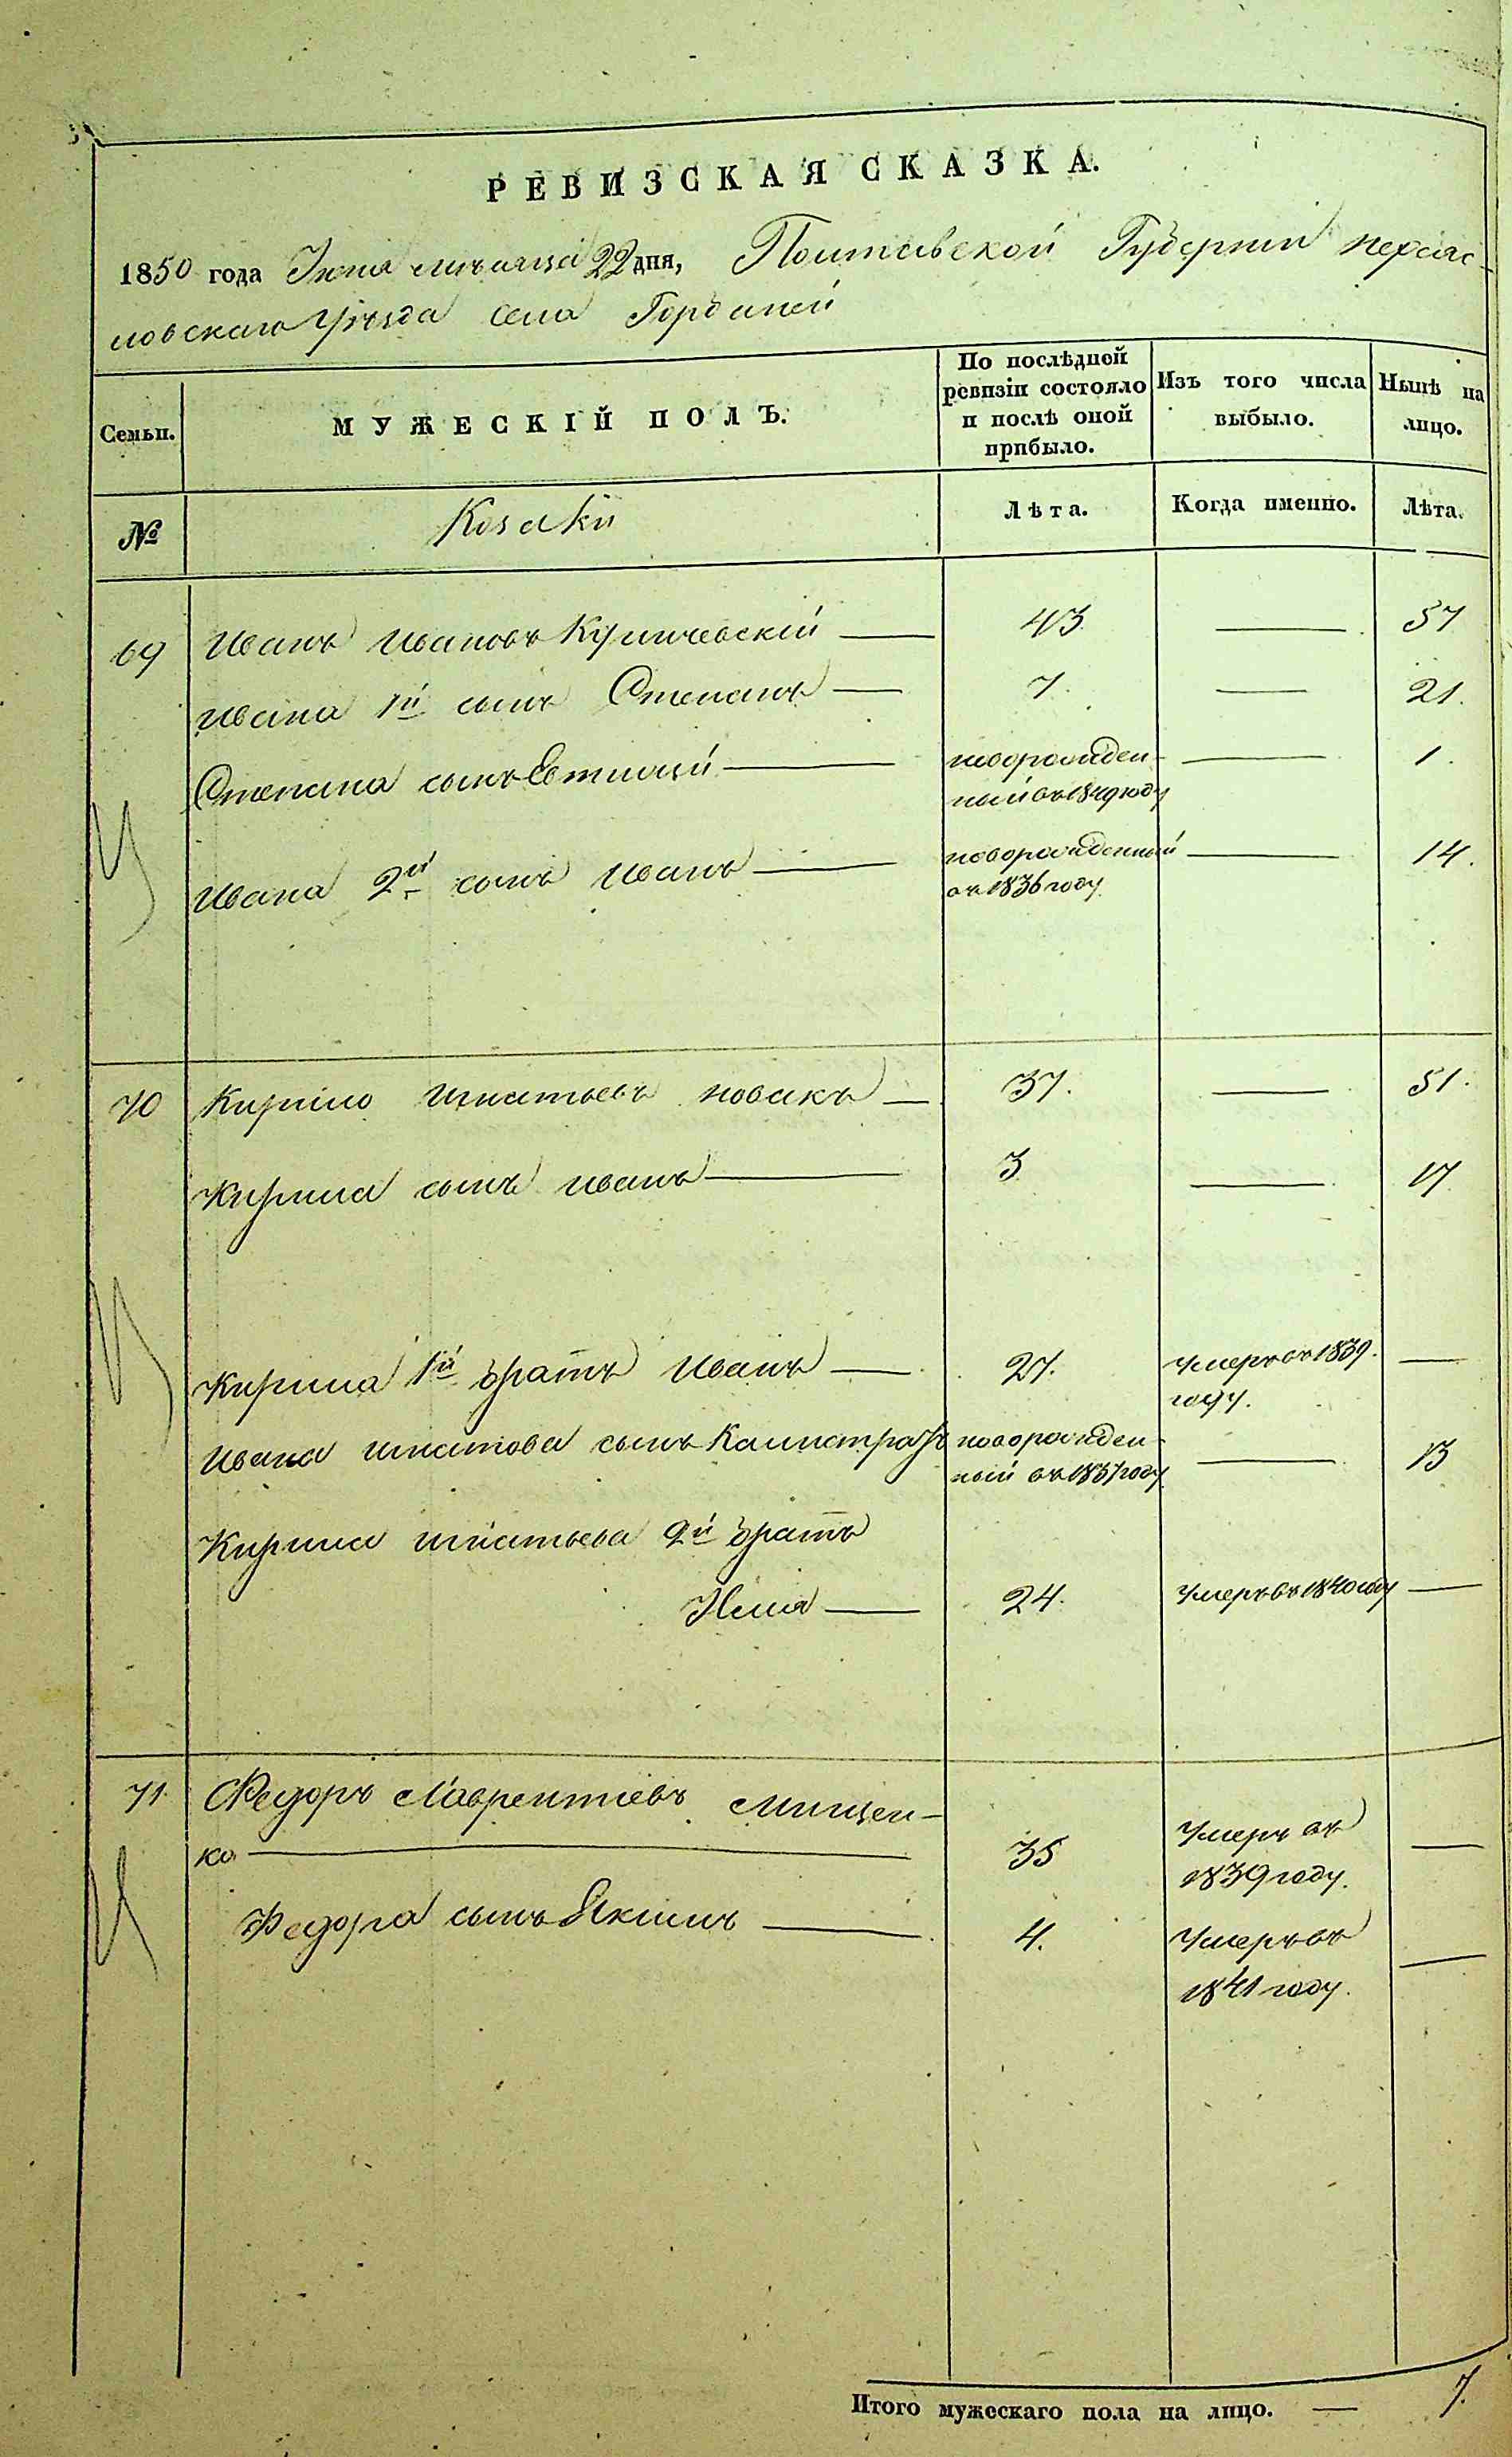 РЕВИЗСКАЯ СКАЗКА.
1850 года Іюня мѣсяца 22 дня, Полтавской Губерніи переяс-
ловскаго уѣзда села
Семьи.
МУЖЕСКІЙ ПОЛЪ.
По послѣдней ревизіи состояло и послѣ оной прибыло.
Изъ того числа выбыло.
Нынѣ на лицо.
№
Козаки
Лѣта.
Когда именно.
Лѣта.
69 Иванъ Ивановъ — 43. — 57
Ивана 1й сынъ Степанъ — 7. — 21.
Степана сынъ Евтихій — новорожден-
ный въ 1849 году — 1.
Ивана 2й сынъ Иванъ — новорожденный
въ 1836 году — 14.
70 Кирило Игнатьевъ новакъ — 37. — 51.
Кирила сынъ иванъ — 3 — 17
Кирила 1й братъ Иванъ — 27. Умеръ въ 1839.
году. —
Ивана игнатова сынъ Калистратъ новорожден-
ный въ 1837 году — 13
Кирила игнатьева 2й братъ
Илья — 24. Умеръ въ 1840 году —
71. Федоръ Лаврентіевъ Мищен-
ко — 35 Умеръ въ
1839 году. —
Федора сынъ Якимъ — 4. Умеръ въ
1841 году. —
Итого мужескаго пола на лицо. — 7.